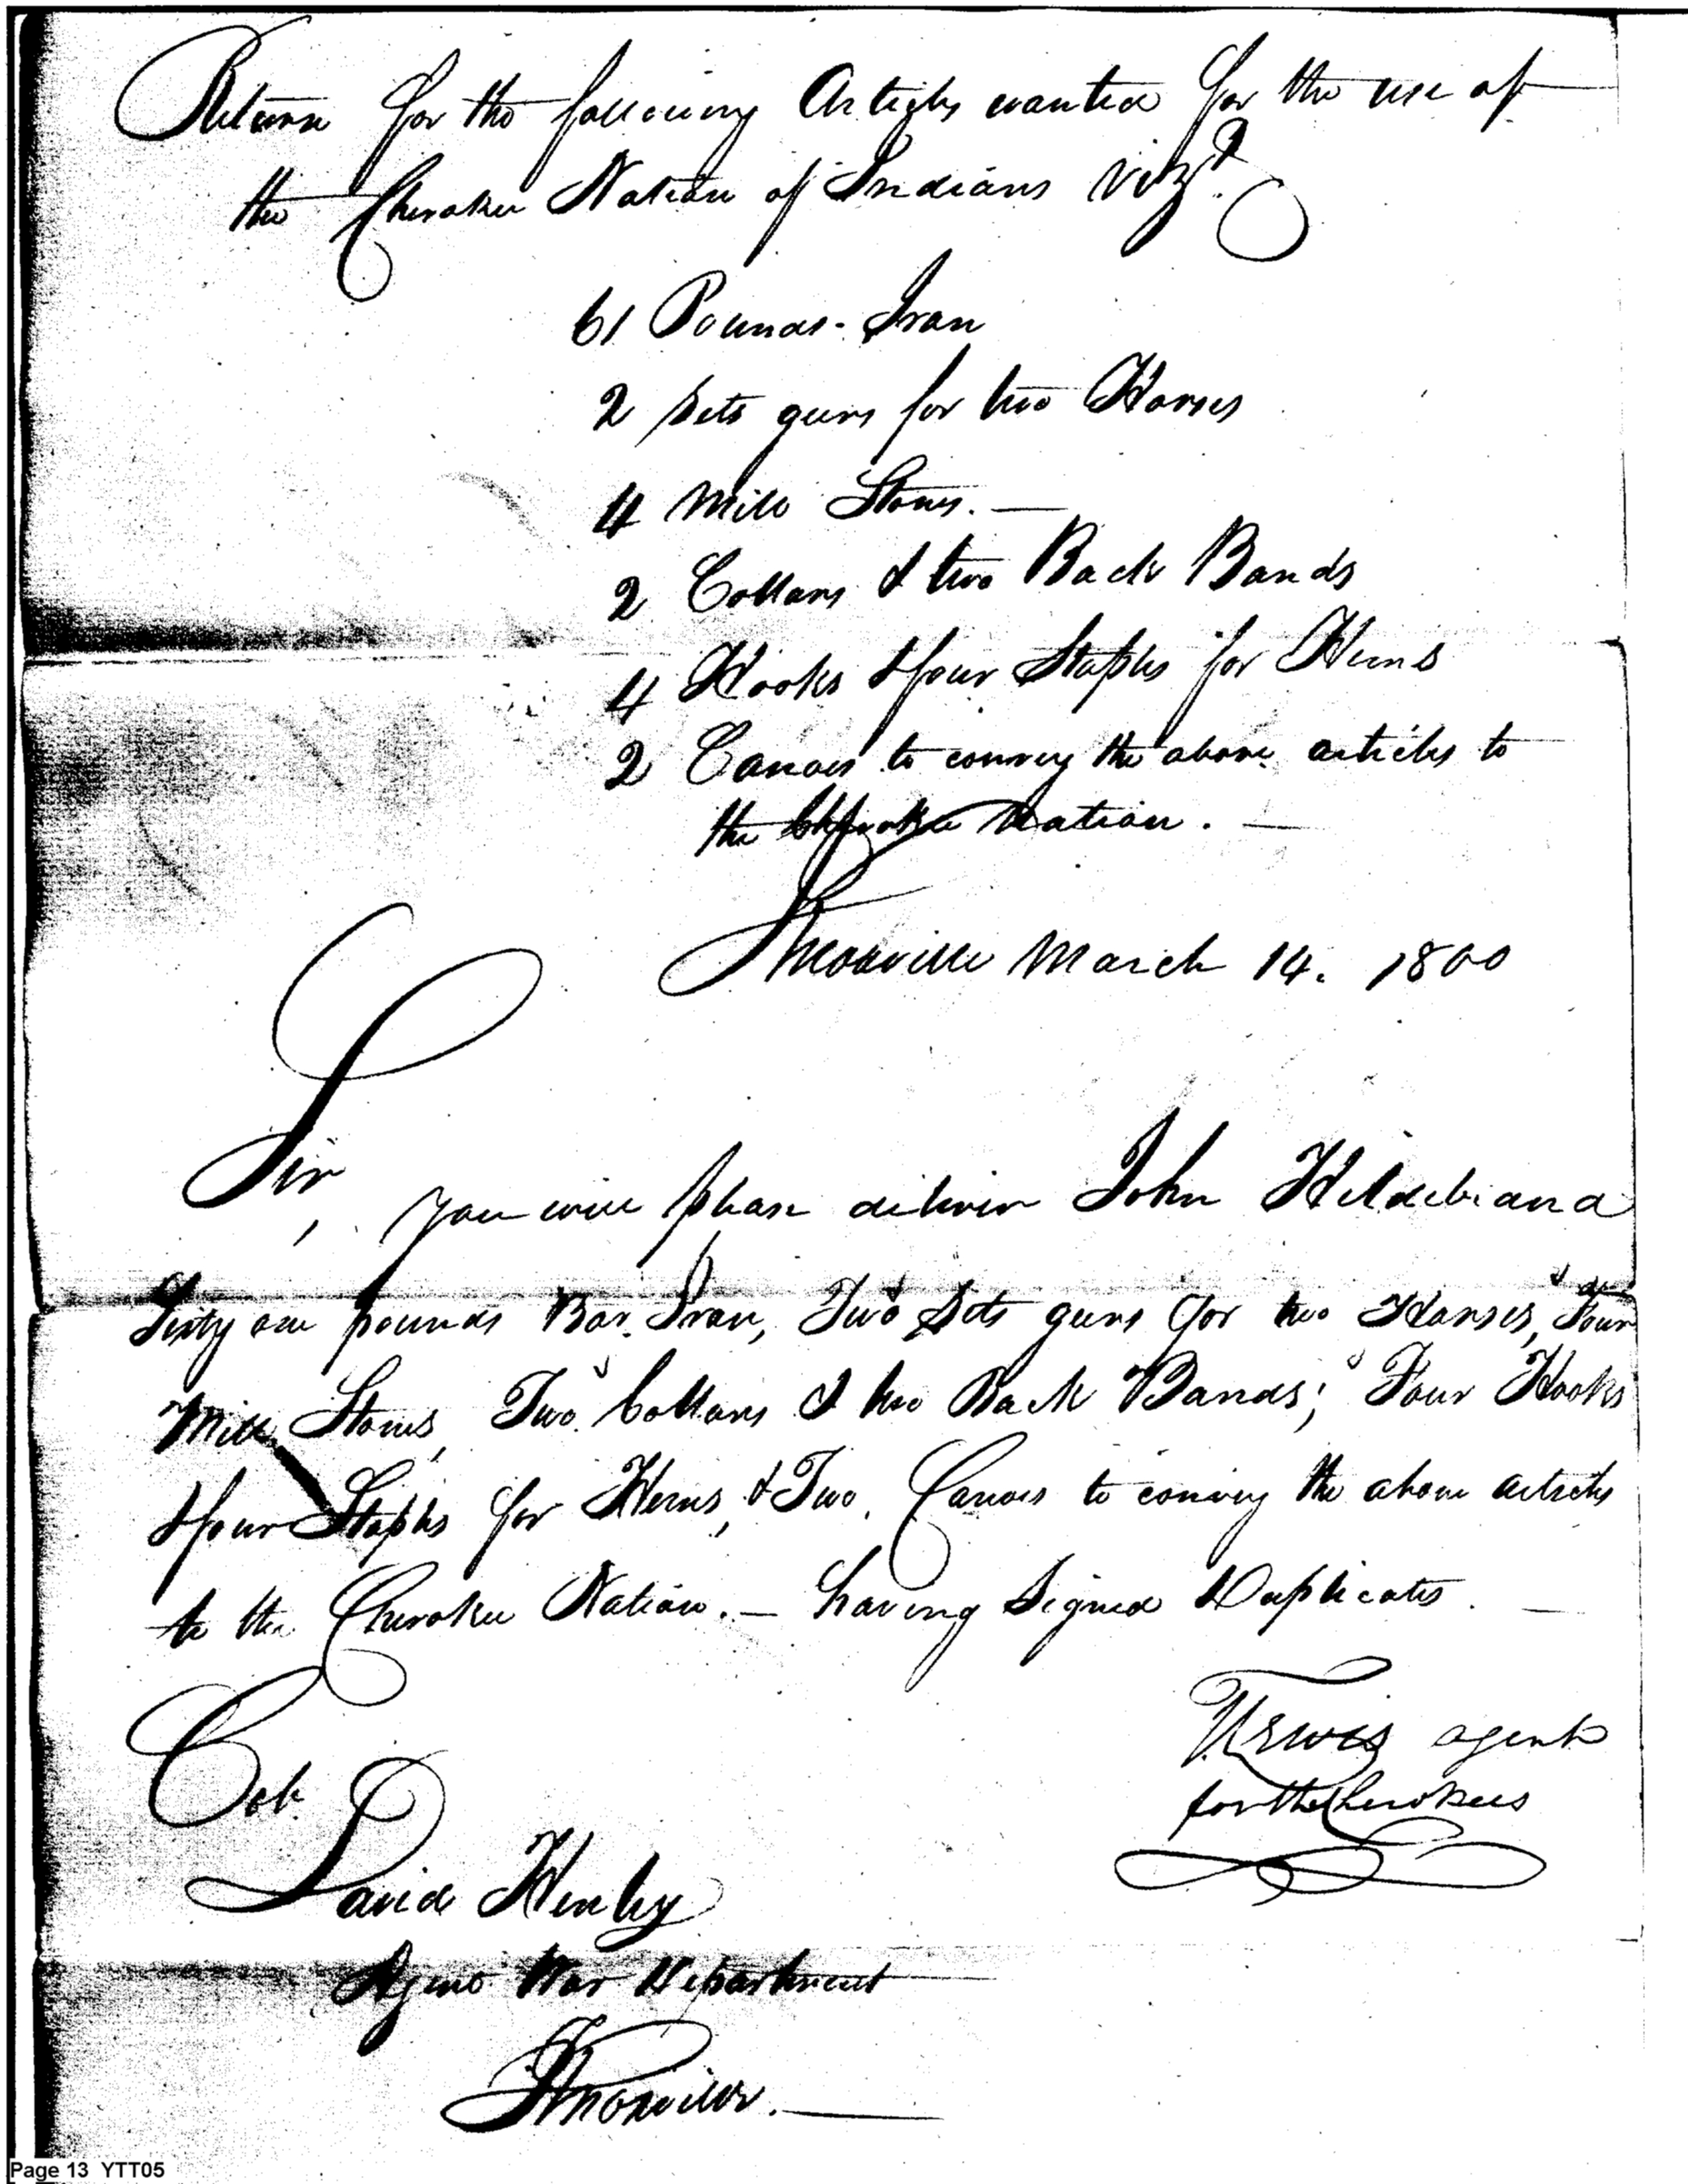 Return for the following Articles wanted for the use of
the Cherokee Nation of Indians Vizt.
61 Pounds - Iron
2 Sets geers for two Horses
4 Mill Stones. —
2 Collars & two Back Bands
4 Hooks & four Staples for Hems
2 Canoes to convey the above articles to
the Cherokee Nation. —
Knoxville March 14. 1800
Sir,
you will please deliver John Hildebrand
Sixty one pounds Bar Iron, Two Sets geers for two Horses, Four
Mill Stones, Two Collars & two Back Bands; Four Hooks
& four Staples for Hems, & Two Canoes to convey the above articles
to the Cherokee Nation. — having Signed Duplicates. —
T. Lewis agent
for the Cherokees
Col.
David Henley
Agent War Department
Knoxville. —
Page 13 YTT05